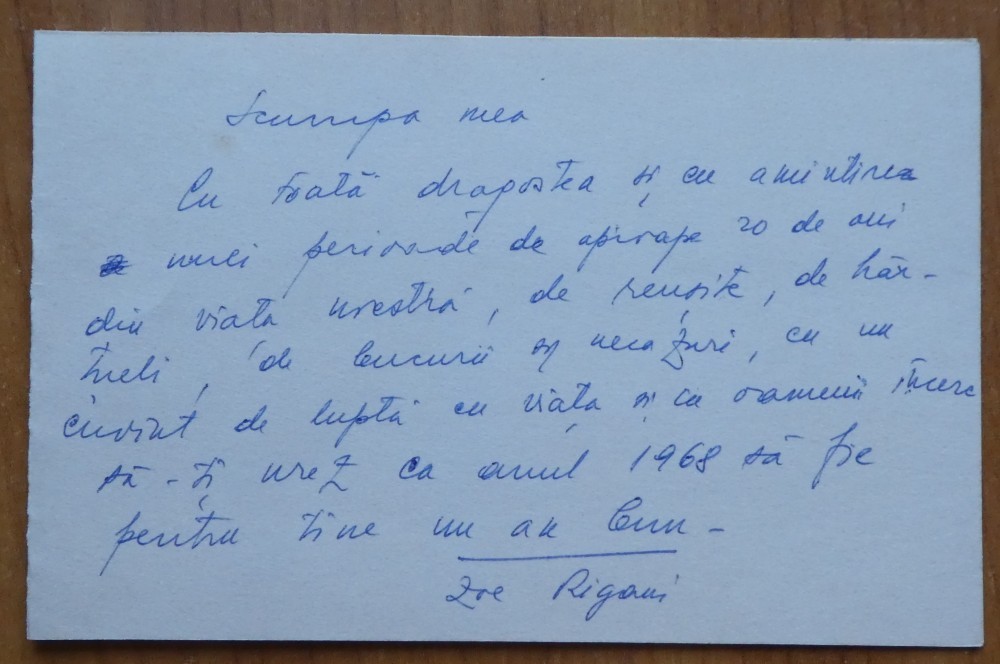 Scumpa mea
Cu toată dragostea și cu amintirea
unei perioade de aproape 20 de ani
din viața noastră, de reușite, de hăr-
țueli, de bucurii și necazuri, cu un
cuvint de luptă cu viața și cu oamenii încerc
să-ți urez ca anul 1968 să fie
pentru tine un an bun -
Zoe Rigani